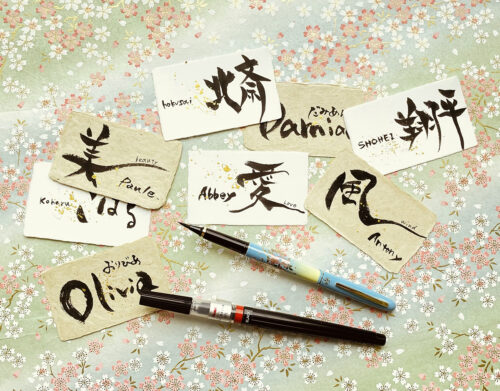 hokusai
北斎
だみあん
Damian
SHOHEI
翔平
美
beauty
Paule
Koharu
はる
Abbey
愛
love
風
wind
Antony
おりびあ
Olivia